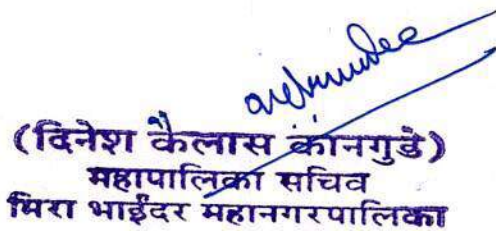 (दिनेश कैलास कानगुडे)
महापालिका सचिव
मिरा भाईंदर महानगरपालिका